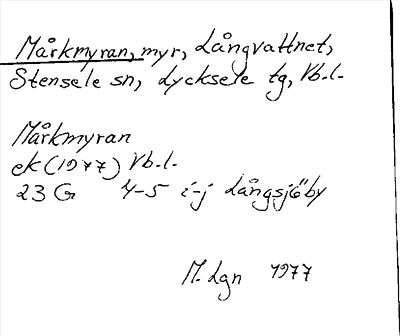 Mårkmyran, myr, Långvattnet,
Stensele sn, Lycksele tg, Vb.l.
Mårkmyran
ek (1977) Vb.l.
23 G 4-5 i-j Långsjöby
M. Lgn 1977